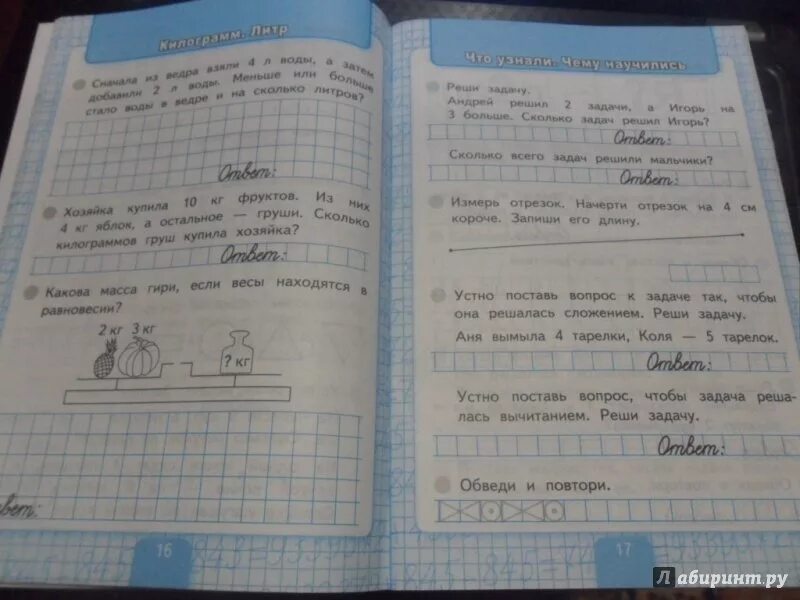 Килограмм. Литр
Сначала из ведра взяли 4 л воды, а затем
добавили 2 л воды. Меньше или больше
стало воды в ведре и на сколько литров?
Ответ:
Хозяйка купила 10 кг фруктов. Из них
4 кг яблок, а остальное — груши. Сколько
килограммов груш купила хозяйка?
Ответ:
Какова масса гири, если весы находятся в
равновесии?
2 кг 3 кг
? кг
вет:
16
Что узнали. Чему научились
Реши задачу.
Андрей решил 2 задачи, а Игорь на
3 больше. Сколько задач решил Игорь?
Ответ:
Сколько всего задач решили мальчики?
Ответ:
Измерь отрезок. Начерти отрезок на 4 см
короче. Запиши его длину.
Устно поставь вопрос к задаче так, чтобы
она решалась сложением. Реши задачу.
Аня вымыла 4 тарелки, Коля — 5 тарелок.
Ответ:
Устно поставь вопрос, чтобы задача реша-
лась вычитанием. Реши задачу.
Ответ:
Обведи и повтори.
17
Лабиринт.ру